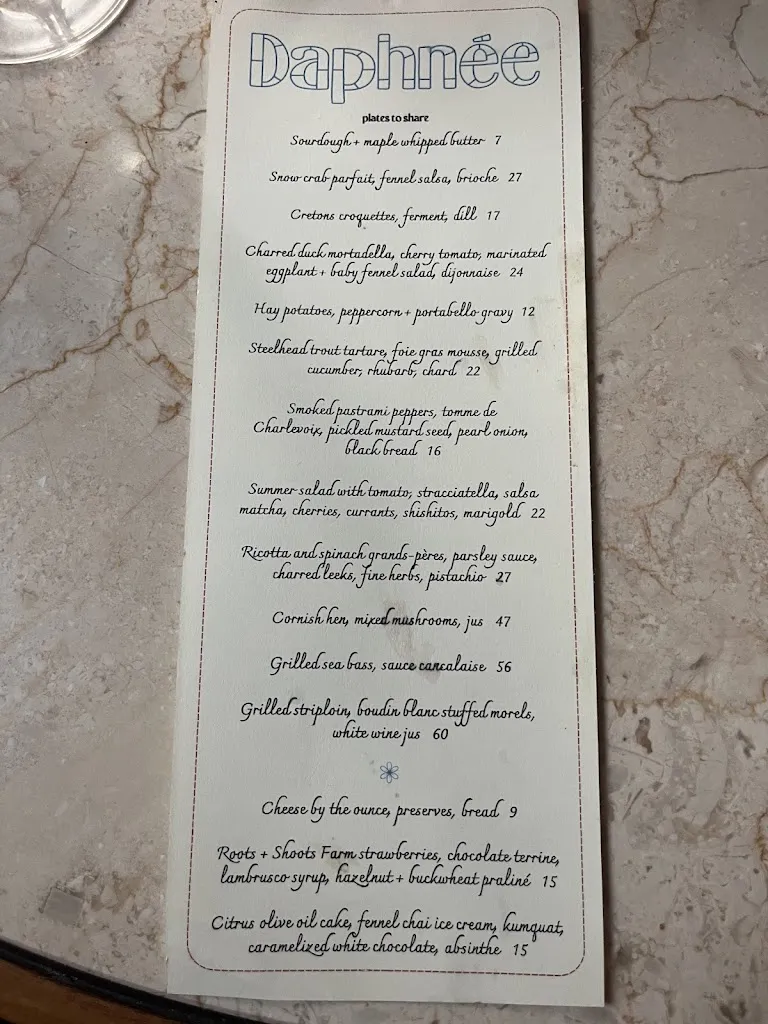 Daphnée
plates to share
Sourdough + maple whipped butter 7
Snow crab parfait, fennel salsa, brioche 27
Cretons croquettes, ferment, dill 17
Charred duck mortadella, cherry tomato, marinated
eggplant + baby fennel salad, dijonnaise 24
Hay potatoes, peppercorn + portabello gravy 12
Steelhead trout tartare, foie gras mousse, grilled
cucumber, rhubarb, chard 22
Smoked pastrami peppers, tomme de
Charlevoix, pickled mustard seed, pearl onion,
black bread 16
Summer salad with tomato, stracciatella, salsa
matcha, cherries, currants, shishitos, marigold 22
Ricotta and spinach grands-pères, parsley sauce,
charred leeks, fine herbs, pistachio 27
Cornish hen, mixed mushrooms, jus 47
Grilled sea bass, sauce cancalaise 56
Grilled striploin, boudin blanc stuffed morels,
white wine jus 60
Cheese by the ounce, preserves, bread 9
Roots + Shoots Farm strawberries, chocolate terrine,
lambrusco syrup, hazelnut + buckwheat praliné 15
Citrus olive oil cake, fennel chai ice cream, kumquat,
caramelized white chocolate, absinthe 15